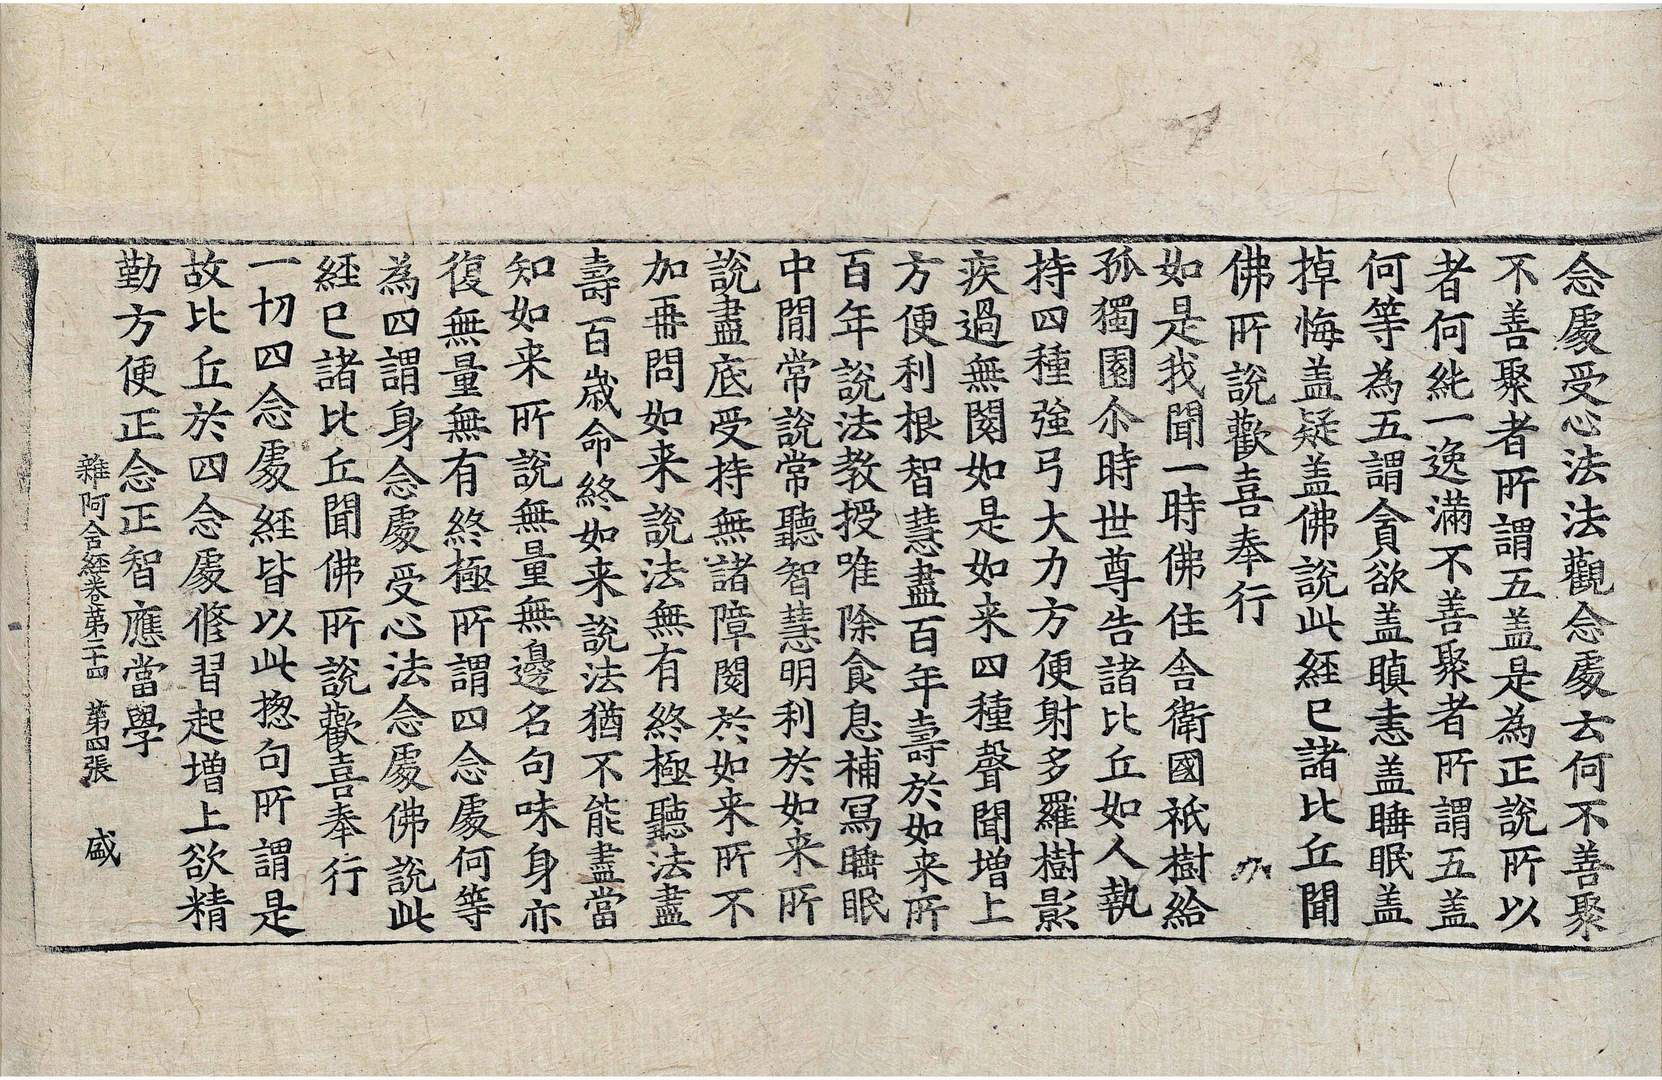 念處受心法法觀念處云何不善聚
不善聚者所謂五盖是為正說所以
者何純一逸滿不善聚者所謂五盖
何等為五謂貪欲盖瞋恚盖睡眠盖
掉悔盖疑盖佛說此經已諸比丘聞
佛所說歡喜奉行
如是我聞一時佛住舍衛國祇樹給
孤獨園尒時世尊告諸比丘如人執
持四種強弓大力方便射多羅樹影
疾過無閡如是如来四種聲聞增上
方便利根智慧盡百年壽於如来所
百年說法教授唯除食息補冩睡眠
中閒常說常聽智慧明利於如来所
說盡底受持無諸障閡於如来所不
加再問如来說法無有終極聽法盡
壽百歲命終如来說法猶不能盡當
知如来所說無量無邊名句味身亦
復無量無有終極所謂四念處何等
為四謂身念處受心法念處佛說此
經已諸比丘聞佛所說歡喜奉行
一切四念處經皆以此揔句所謂是
故比丘於四念處修習起增上欲精
勤方便正念正智應當學
雜阿含經卷第二十四 第四張 盛